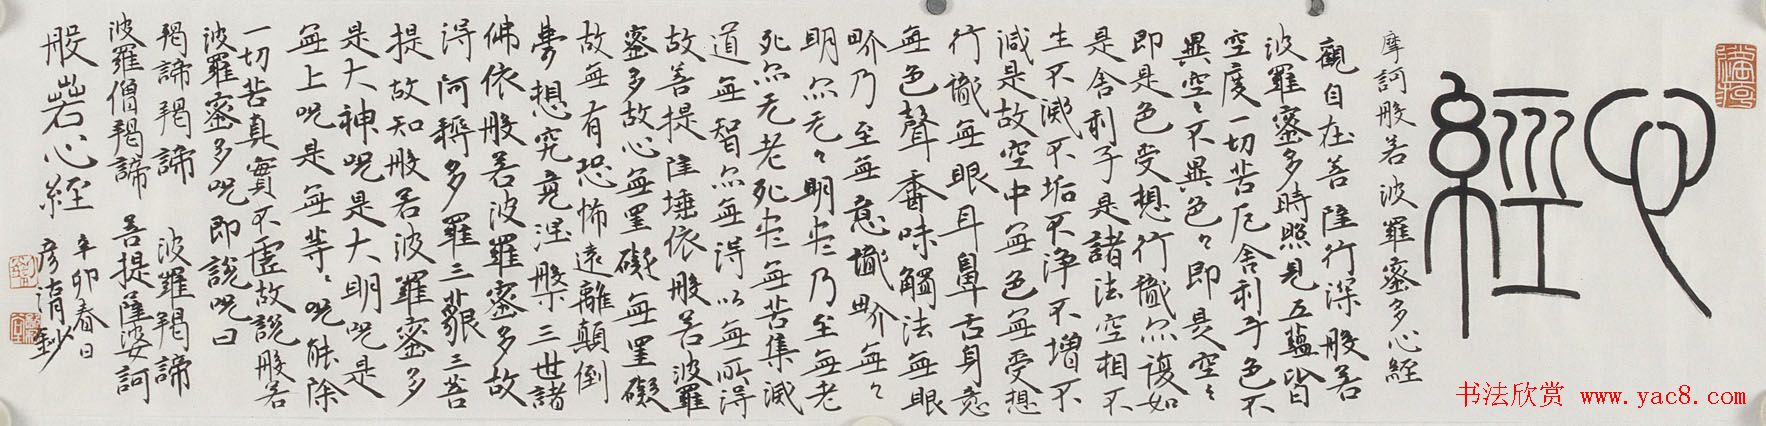 心經
摩訶般若波羅蜜多心經
觀自在菩薩行深般若
波羅蜜多時照見五蘊皆
空度一切苦厄舍利子色不
異空〻不異色〻即是空〻
即是色受想行識亦復如
是舍利子是諸法空相不
生不滅不垢不淨不增不
減是故空中無色無受想
行識無眼耳鼻舌身意
無色聲香味觸法無眼
界乃至無意識界無〻
明亦无〻明尽乃至無老
死亦无老死尽無苦集滅
道無智亦無得以無所得
故菩提薩埵依般若波羅
蜜多故心無罣礙無罣礙
故無有恐怖遠離顛倒
夢想究竟涅槃三世諸
佛依般若波羅蜜多故
得阿耨多羅三藐三菩
提故知般若波羅蜜多
是大神呪是大明呪是
無上呪是無等〻呪能除
一切苦真實不虛故說般若
波羅蜜多呪即說呪曰
羯諦羯諦 波羅羯諦
波羅僧羯諦 菩提薩婆訶
般若心經 辛卯春日
鈔
书法欣赏 www.yac8.com